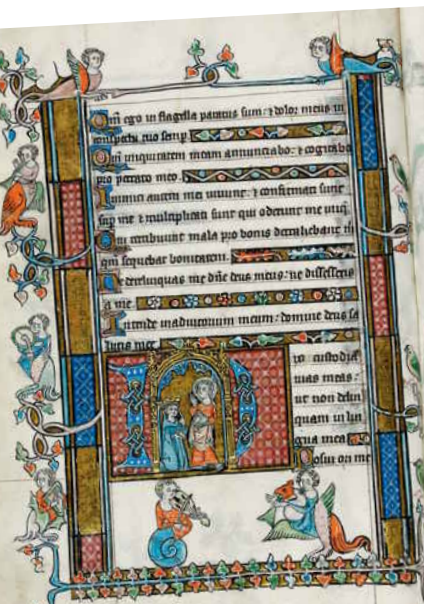 Qm ego in flagella paratus sum: ⁊ dolor meus in
conspectu tuo semp
Qm iniquitatem meam annunciabo: ⁊ cogitabo
pro peccato meo.
Inimici autem mei uiuunt: ⁊ confirmati sunt
sup me ⁊ multiplicati sunt qui oderunt me
Qui retribuunt mala pro bonis detrahebant
qm sequebar bonitatem.
Ne derelinquas me dñe deus meus: ne discesseris
a me.
Intende in adiutorium meum: domine deus sa
lutis mee.
custodia
uias meas:
ut non delin
quam in lin
gua mea
Posui ori me